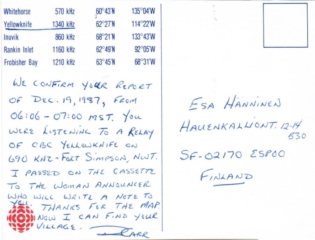 Whitehorse 570 kHz 60°43'N 135°04'W
Yellowknife 1340 kHz 62°27'N 114°22'W
Inuvik 860 kHz 68°21'N 133°43'W
Rankin Inlet 1160 kHz 62°49'N 92°05'W
Frobisher Bay 1210 kHz 63°45'N 68°31'W
WE CONFIRM YOUR REPORT
OF DEC. 19, 1987, FROM
06:06 - 07:00 MST. YOU
WERE LISTENING TO A RELAY
OF CBC YELLOWKNIFE ON
690 KHZ - FORT SIMPSON, NWT.
I PASSED ON THE CASSETTE
TO THE WOMAN ANNOUNCER
WHO WILL WRITE A NOTE TO
YOU. THANKS FOR THE MAP
NOW I CAN FIND YOUR
VILLAGE.
ESA HÄNNINEN
HAUENKALLIONT. 12-14
B30
SF-02170 ESPOO
FINLAND